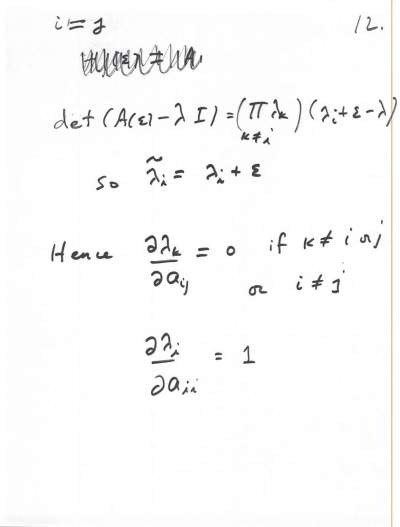 i = j 12.
det (A(ε) - λ I) = (∏ λₖ) (λᵢ + ε - λ)
k≠i
so λ̃ᵢ = λᵢ + ε
Hence ∂λₖ/∂aᵢⱼ = 0 if k ≠ i or j
or i ≠ j
∂λᵢ/∂aᵢᵢ = 1